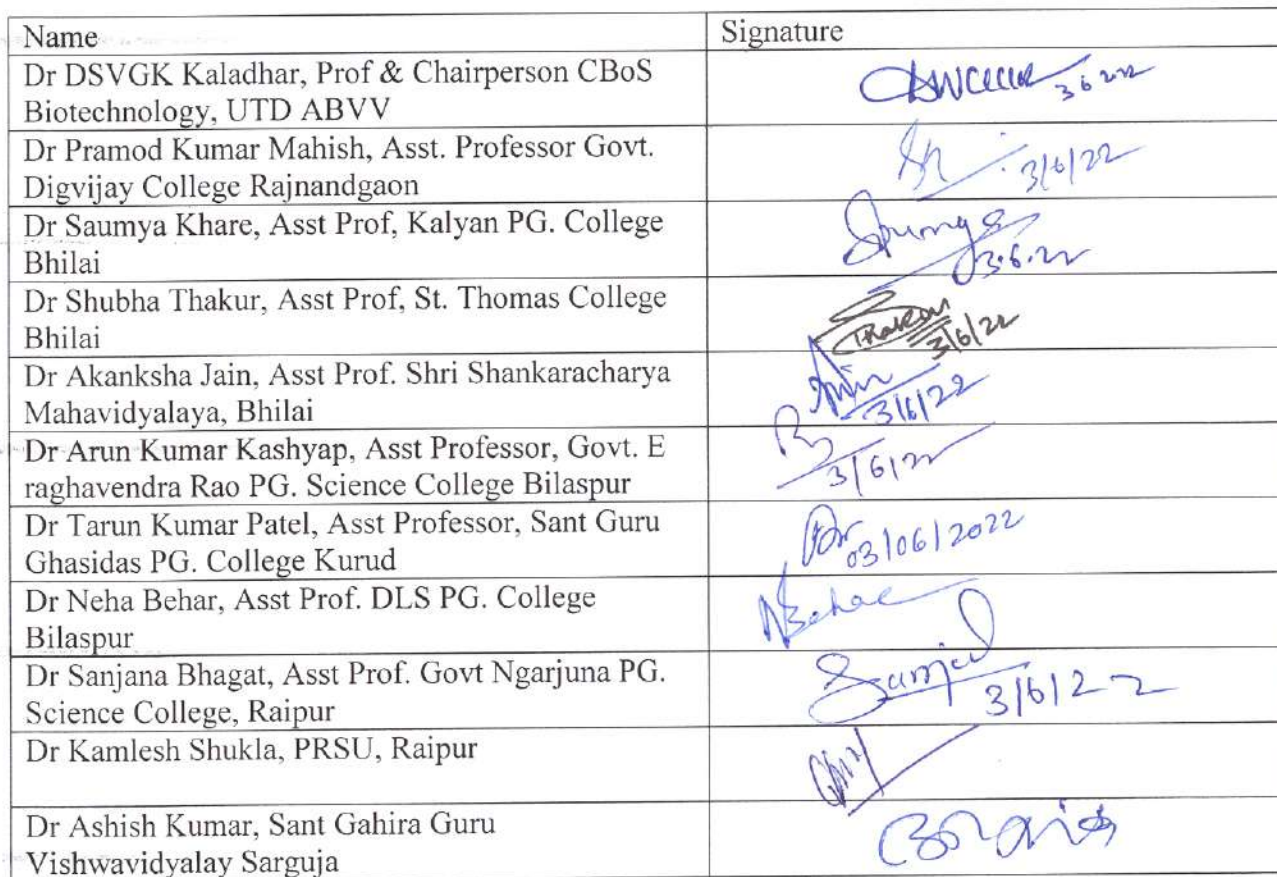 Name Signature
Dr DSVGK Kaladhar, Prof & Chairperson CBoS
Biotechnology, UTD ABVV
3 6 22
Dr Pramod Kumar Mahish, Asst. Professor Govt.
Digvijay College Rajnandgaon
3/6/22
Dr Saumya Khare, Asst Prof, Kalyan PG. College
Bhilai
3.6.22
Dr Shubha Thakur, Asst Prof, St. Thomas College
Bhilai
Thakur
3/6/22
Dr Akanksha Jain, Asst Prof. Shri Shankaracharya
Mahavidyalaya, Bhilai
3/6/22
Dr Arun Kumar Kashyap, Asst Professor, Govt. E
raghavendra Rao PG. Science College Bilaspur
3/6/22
Dr Tarun Kumar Patel, Asst Professor, Sant Guru
Ghasidas PG. College Kurud
03/06/2022
Dr Neha Behar, Asst Prof. DLS PG. College
Bilaspur
NBehar
Dr Sanjana Bhagat, Asst Prof. Govt Ngarjuna PG.
Science College, Raipur
3/6/22
Dr Kamlesh Shukla, PRSU, Raipur
Dr Ashish Kumar, Sant Gahira Guru
Vishwavidyalay Sarguja